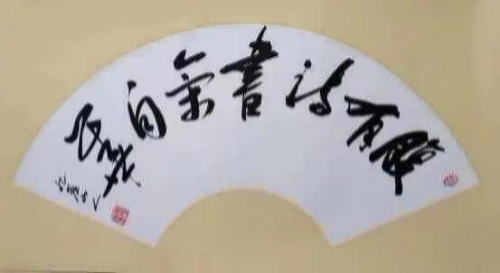 腹有诗書氣自華